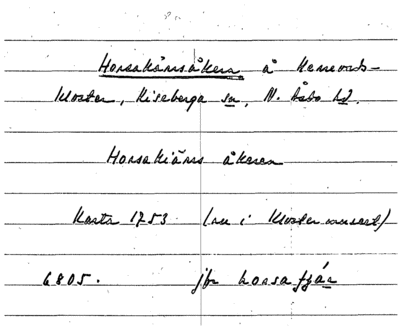 Horsakärrsåkern å Herrevads-
kloster, Riseberga sn, N. Åsbo hd.
Horsakiärrs åkeren
Karta 1753 (nu i Klostermuseet)
6805. jfr horsa